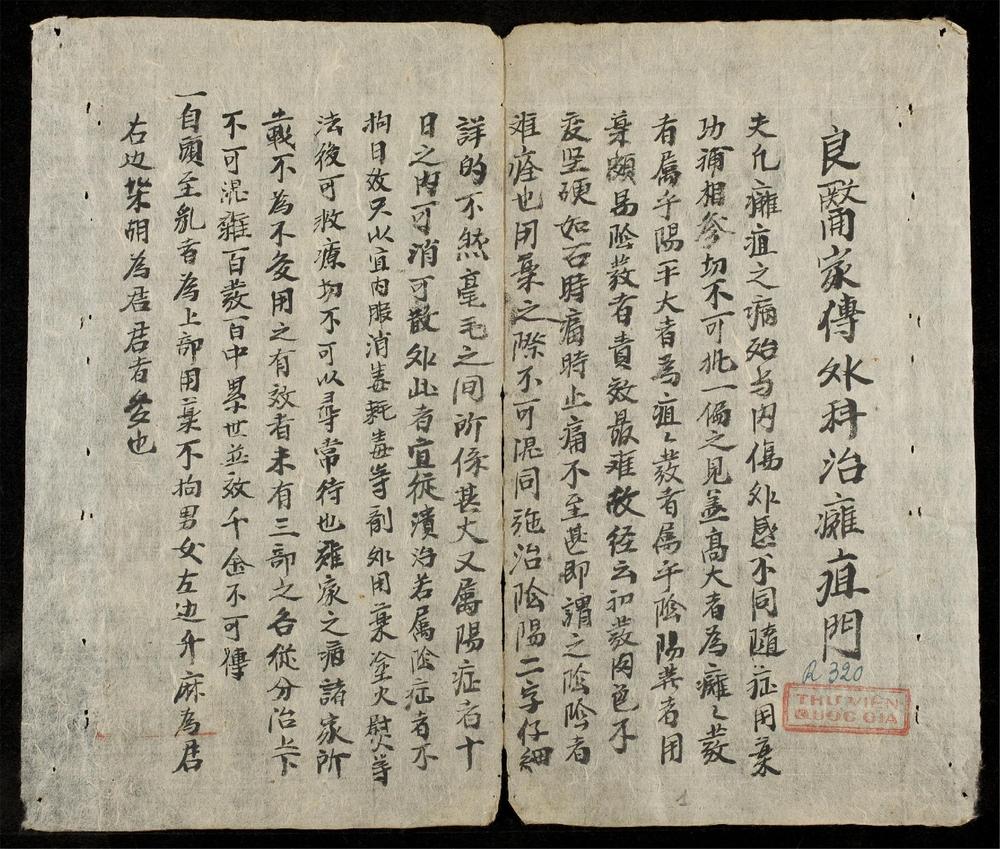 良醫用家傳外科治癰疽門
夫凡癰疽之病始与内傷外感不同隨症用藥
功補相參切不可执一偏之見盖高大者為癰々發
者属乎陽平大者為疽々發者属乎陰陽發者用
藥頗易陰發者責效最难故经云初發肉色不
变坚硬如石時痛時止痛不至甚即謂之陰陰者
难痊也用藥之際不可混同施治陰陽二字仔細
詳的不然毫毛之间所係甚大又属陽症者十
日之内可消可散外此者宜従潰治若属陰症者不
拘日数只以宜内服消毒托毒等剤外用藥塗火熨等
法後可救療切不可以尋常待也雖家之病諸家所
載不為不多用之有效者未有三部之各從分治上下
不可混雜百發百中累世並效千金不可傳
一自頭至乳者為上部用藥不拘男女左边升麻為君
右边柴胡為君君者多也
R 320
THƯ VIỆN
QUỐC GIA
1